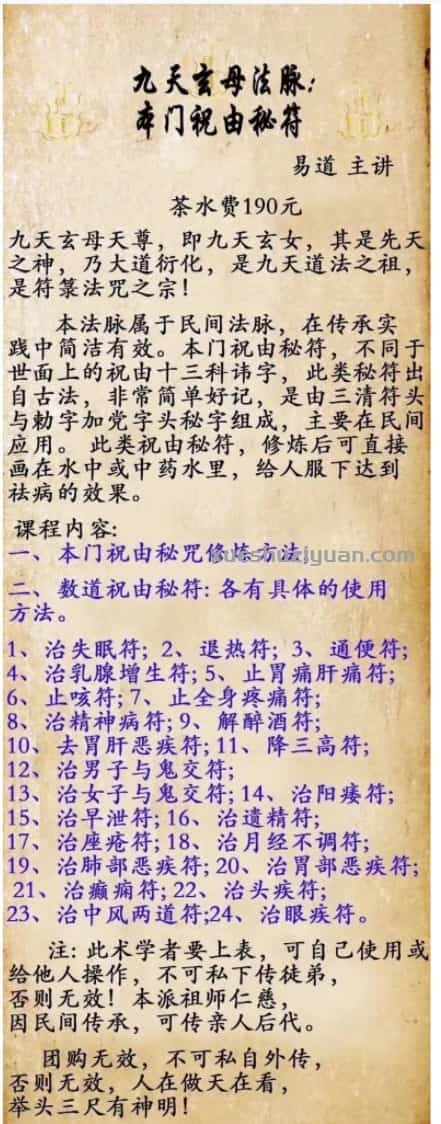 九天玄母法脉:
本门祝由秘符
易道 主讲
茶水费190元
九天玄母天尊，即九天玄女，其是先天
之神，乃大道衍化，是九天道法之祖，
是符箓法咒之宗！
本法脉属于民间法脉，在传承实
践中简洁有效。本门祝由秘符，不同于
世面上的祝由十三科讳字，此类秘符出
自古法，非常简单好记，是由三清符头
与勅字加党字头秘字组成，主要在民间
应用。 此类祝由秘符，修炼后可直接
画在水中或中药水里，给人服下达到
祛病的效果。
课程内容:
一、本门祝由秘咒修炼方法。
二、数道祝由秘符: 各有具体的使用
方法。
1、治失眠符; 2、退热符; 3、通便符;
4、治乳腺增生符; 5、止胃痛肝痛符;
6、止咳符; 7、止全身疼痛符;
8、治精神病符; 9、解醉酒符;
10、去胃肝恶疾符; 11、降三高符;
12、治男子与鬼交符;
13、治女子与鬼交符; 14、治阳痿符;
15、治早泄符; 16、治遗精符;
17、治座疮符; 18、治月经不调符;
19、治肺部恶疾符; 20、治胃部恶疾符;
21、治癫痫符; 22、治头疾符;
23、治中风两道符;24、治眼疾符。
注: 此术学者要上表，可自己使用或
给他人操作，不可私下传徒弟，
否则无效！本派祖师仁慈，
因民间传承，可传亲人后代。
团购无效，不可私自外传，
否则无效，人在做天在看，
举头三尺有神明！